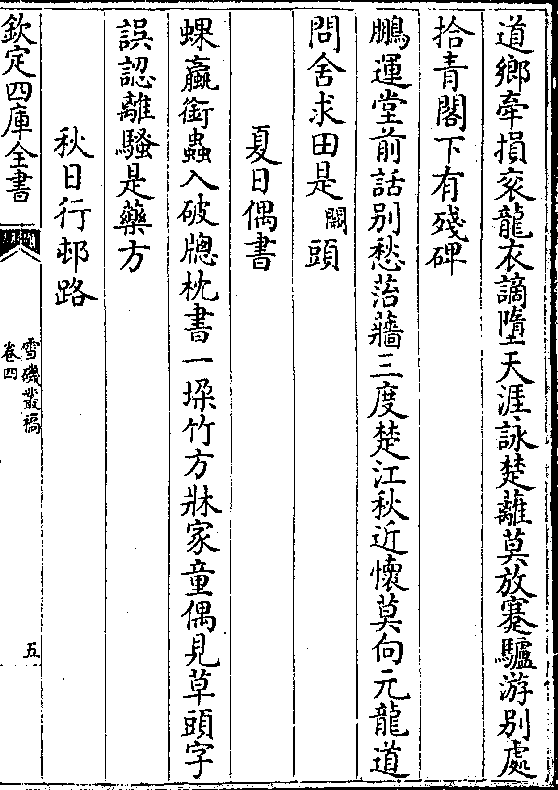 道鄉牽損衮龍衣謫墮天涯詠楚蘺莫放蹇驢游别處
拾青閣下有殘碑
鵬運堂前話别愁菭蘠三度楚江秋近懷莫向元龍道
問舍求田是闕頭
夏日偶書
蜾蠃銜蟲入破牕枕書一垜竹方牀家童偶見草頭字
誤認離騷是藥方
秋日行邨路
欽定四庫全書
雪磯叢稿
卷四
五